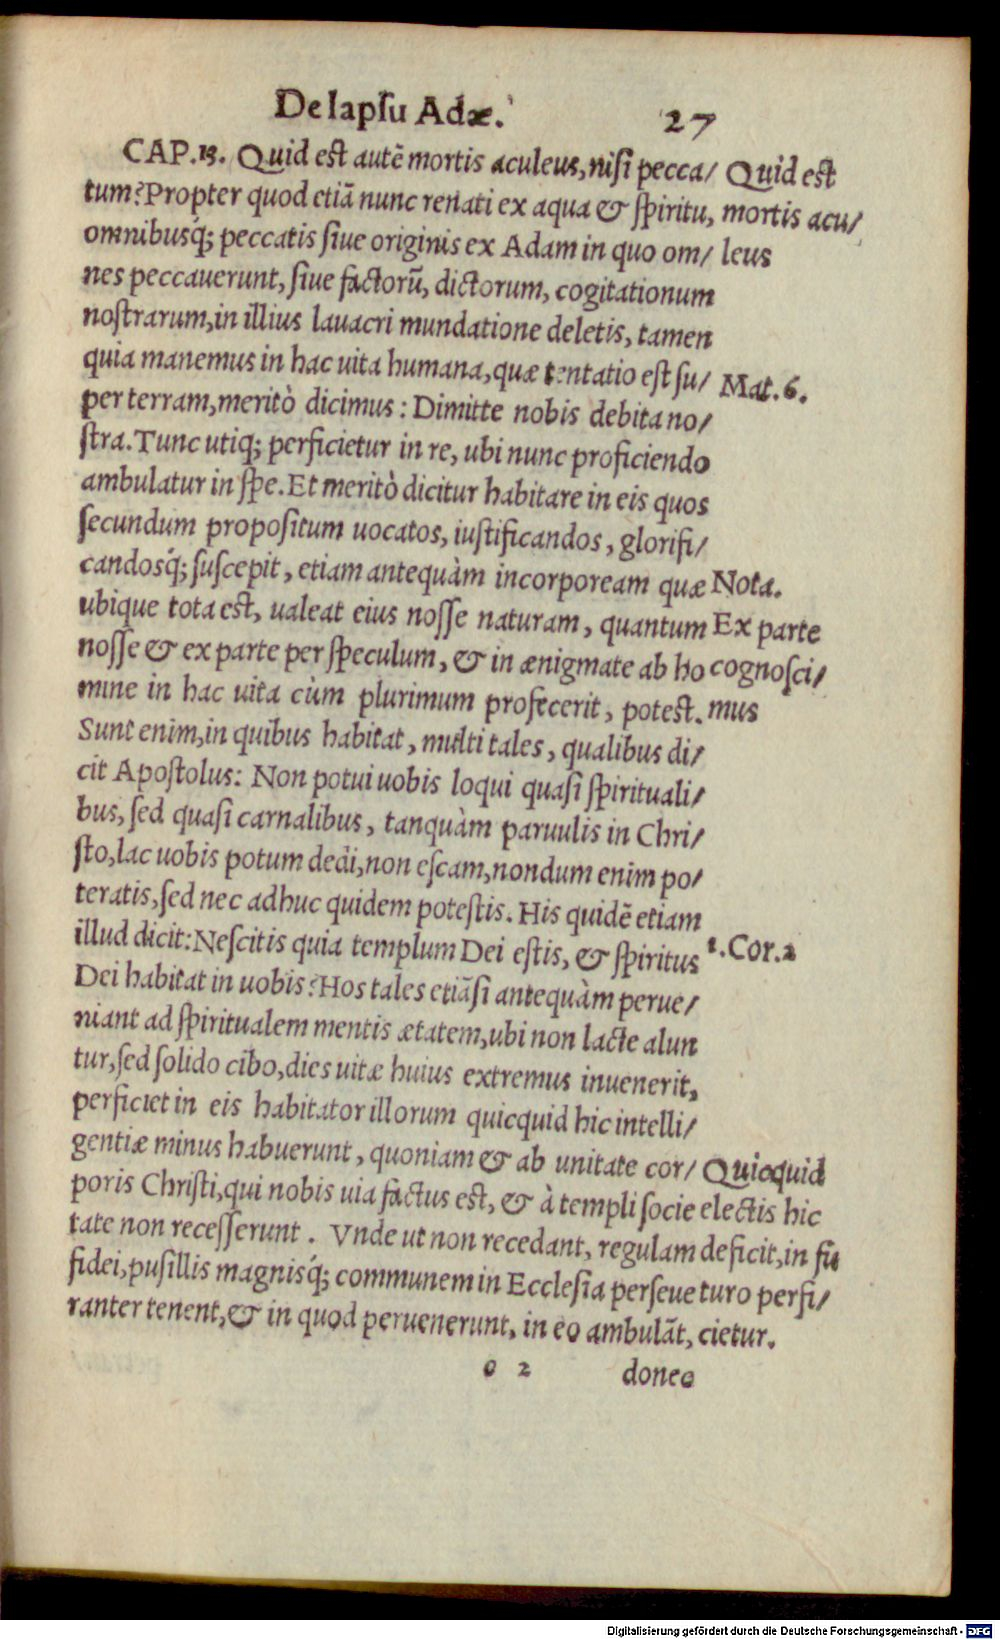 De lapsu Adæ. 27
CAP. 13. Quid est autē mortis aculeus, nisi pecca/
tum? Propter quod etiā nunc renati ex aqua & spiritu,
omnibusq́; peccatis siue originis ex Adam in quo om/
nes peccauerunt, siue factorū, dictorum, cogitationum
nostrarum, in illius lauacri mundatione deletis, tamen
quia manemus in hac uita humana, quæ tentatio est su/
per terram, meritò dicimus: Dimitte nobis debita no/
stra. Tunc utiq; perficietur in re, ubi nunc proficiendo
ambulatur in spe. Et meritò dicitur habitare in eis quos
secundum propositum uocatos, iustificandos, glorifi/
candosq́; suscepit, etiam antequàm incorpoream quæ
ubique tota est, ualeat eius nosse naturam, quantum
nosse & ex parte per speculum, & in ænigmate ab ho
mine in hac uita cùm plurimum profecerit, potest.
Sunt enim, in quibus habitat, multi tales, qualibus di/
cit Apostolus: Non potui uobis loqui quasi spirituali/
bus, sed quasi carnalibus, tanquàm paruulis in Chri/
sto, lac uobis potum dedi, non escam, nondum enim po/
teratis, sed nec adhuc quidem potestis. His quidē etiam
illud dicit: Nescitis quia templum Dei estis, & spiritus
Dei habitat in uobis? Hos tales etiāsi antequàm perue/
niant ad spiritualem mentis ætatem, ubi non lacte alun
tur, sed solido cibo, dies uitæ huius extremus inuenerit,
perficiet in eis habitator illorum quicquid hic intelli/
gentiæ minus habuerunt, quoniam & ab unitate cor/
poris Christi, qui nobis uia factus est, & à templi socie
tate non recesserunt. Vnde ut non recedant, regulam
fidei, pusillis magnisq́; communem in Ecclesia perseue
ranter tenent, & in quod peruenerunt, in eo ambulāt,
Quid est
mortis acu/
leus
Mat. 6.
Nota.
Ex parte
cognosci/
mus
1. Cor. 2
Quicquid
electis hic
deficit, in fu
turo perfi/
cietur.
e 2 donec
Digitalisierung gefördert durch die Deutsche Forschungsgemeinschaft - DFG